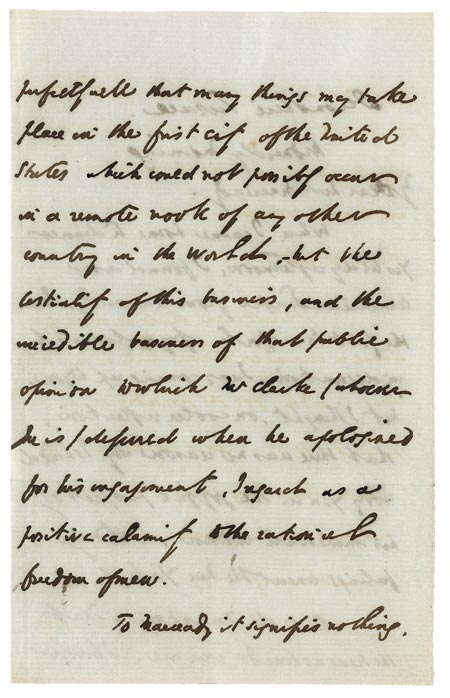 perfectly well that many things may take
place in the first city of the United
States which could not possibly occur
in a remote nook of any other
country in the World, but the
bestiality of this business, and the
incredible baseness of that public
opinion to which Mr Clarke / whoever
he is / deferred when he apologised
for his engagement, I regard as a
positive calamity to the rational
freedom of men.
To Macready it signifies nothing.